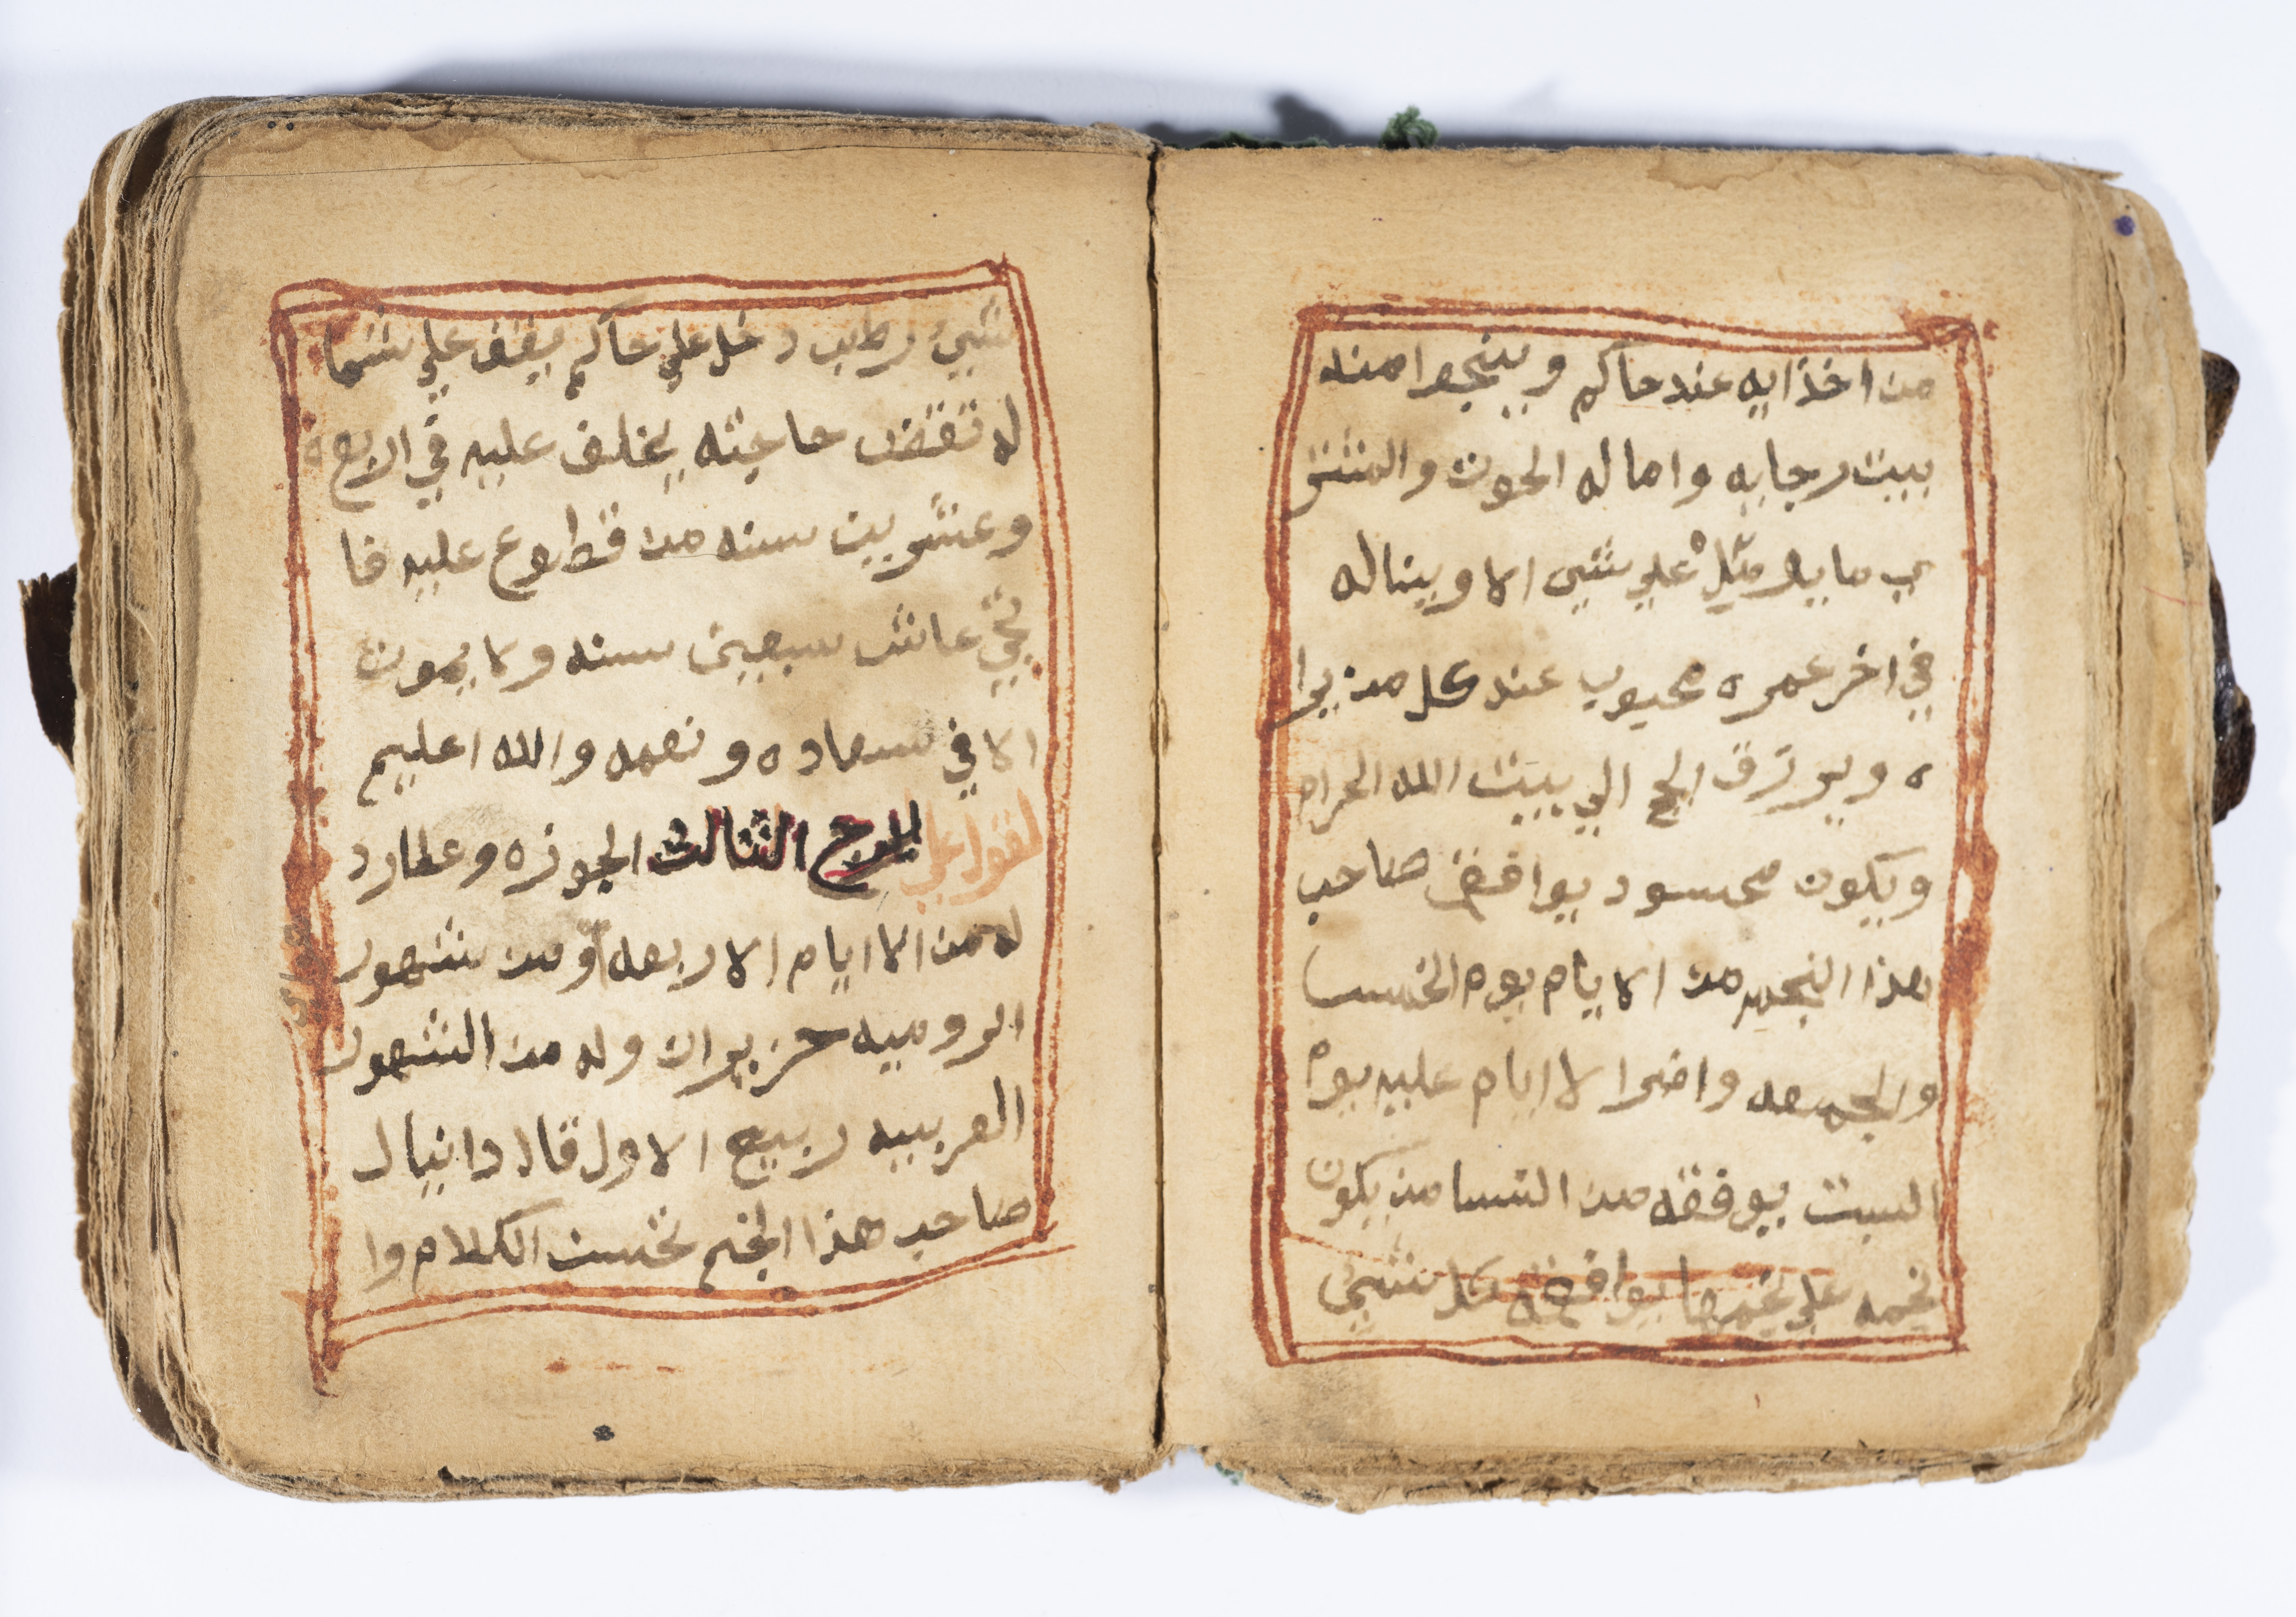 من اخذ ايه عند حاكم وينجوا منه
بيت رجايه واماله الحوت والمشتر
ي ما يدخل علي شي الا ويناله
في اخر عمره محبوب عند كل من يرا
ه ويرزق الحج الي بيت الله الحرام
ويكون محسود يوافق صاحب
هذا النجم من الايام يوم الخميس
والجمعه واضرا لاايام عليه يوم
السبت يوفقه من النسا من يكون
نجمه علي نجمها يوافقه كل شي
شي رطب دخل علي حاكم يقف علي شما
له تقضي حاجته يخاف عليه في الاربعه
وعشرين سنه من قطوع عليه فا
نجي عاش سبعين سنه ولا يموت
الا في سعاده ونعمه والله اعليم
لقول علي البرج الثالث الجوزه وعطارد
له من الاايام الاربعه ومن شهور
الروميه حزيران وله من الشهور
العربيه ربيع الاول قال دانيال
صاحب هذا النجم نحست الكلام وا